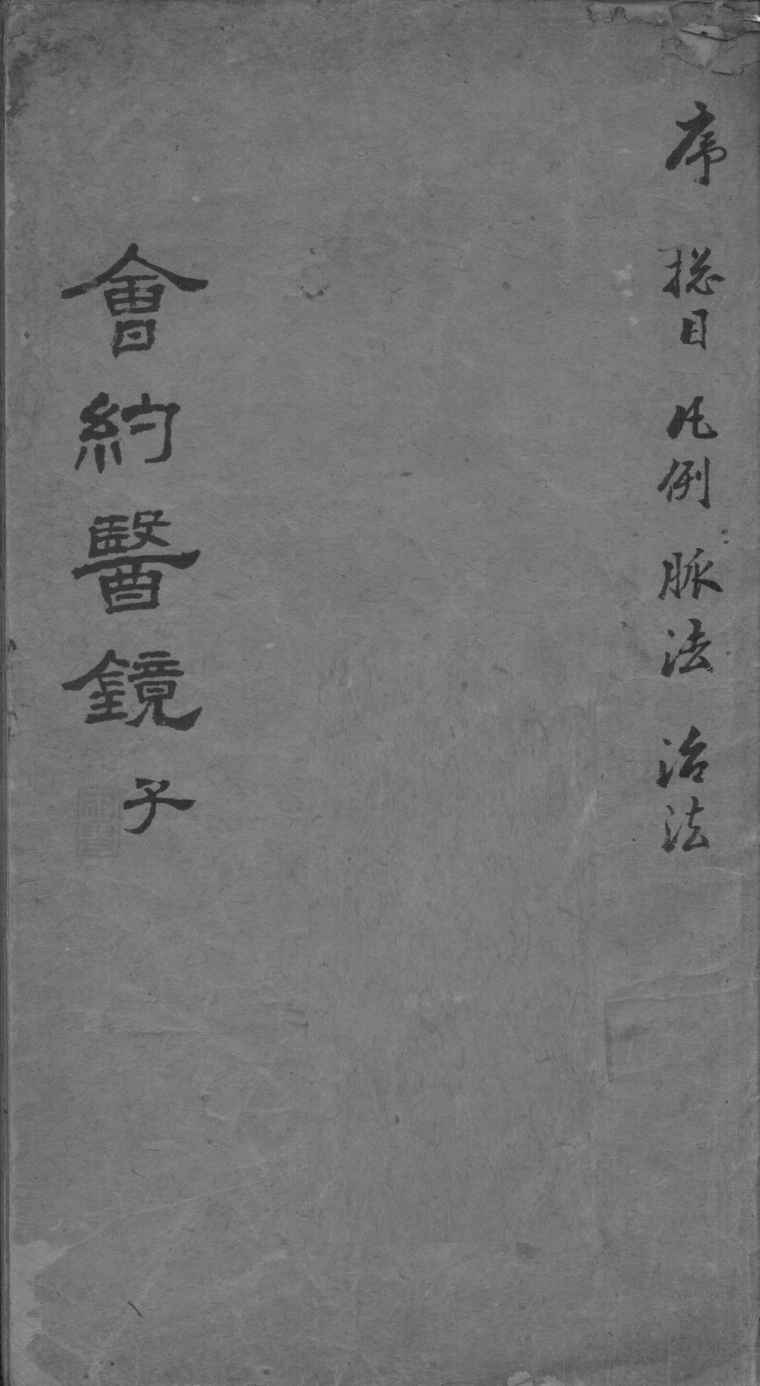 序 捴目 凡例 脈法 治法
會約醫鏡 子